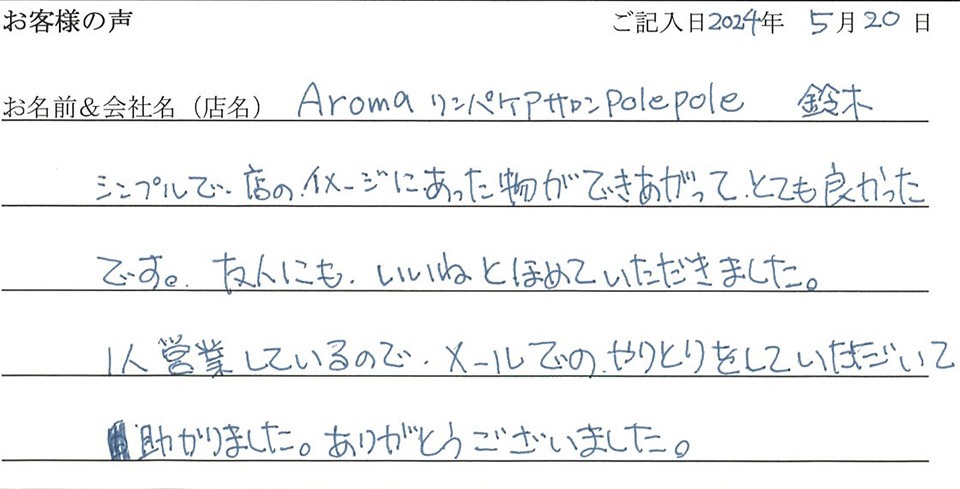 お客様の声 ご記入日2024年 5月20日
お名前&会社名（店名） Aroma リンパケアサロンpolepole 鈴木
シンプルで、店のイメージにあった物ができあがって、とても良かった
です。友人にも、いいねとほめていただきました。
1人営業しているので、メールでのやりとりをしていただいて
助かりました。ありがとうございました。